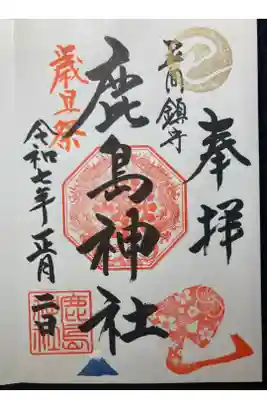 奉拝
鎮守
鹿島神社
歳旦祭
令和七年 正月 二日
鹿島